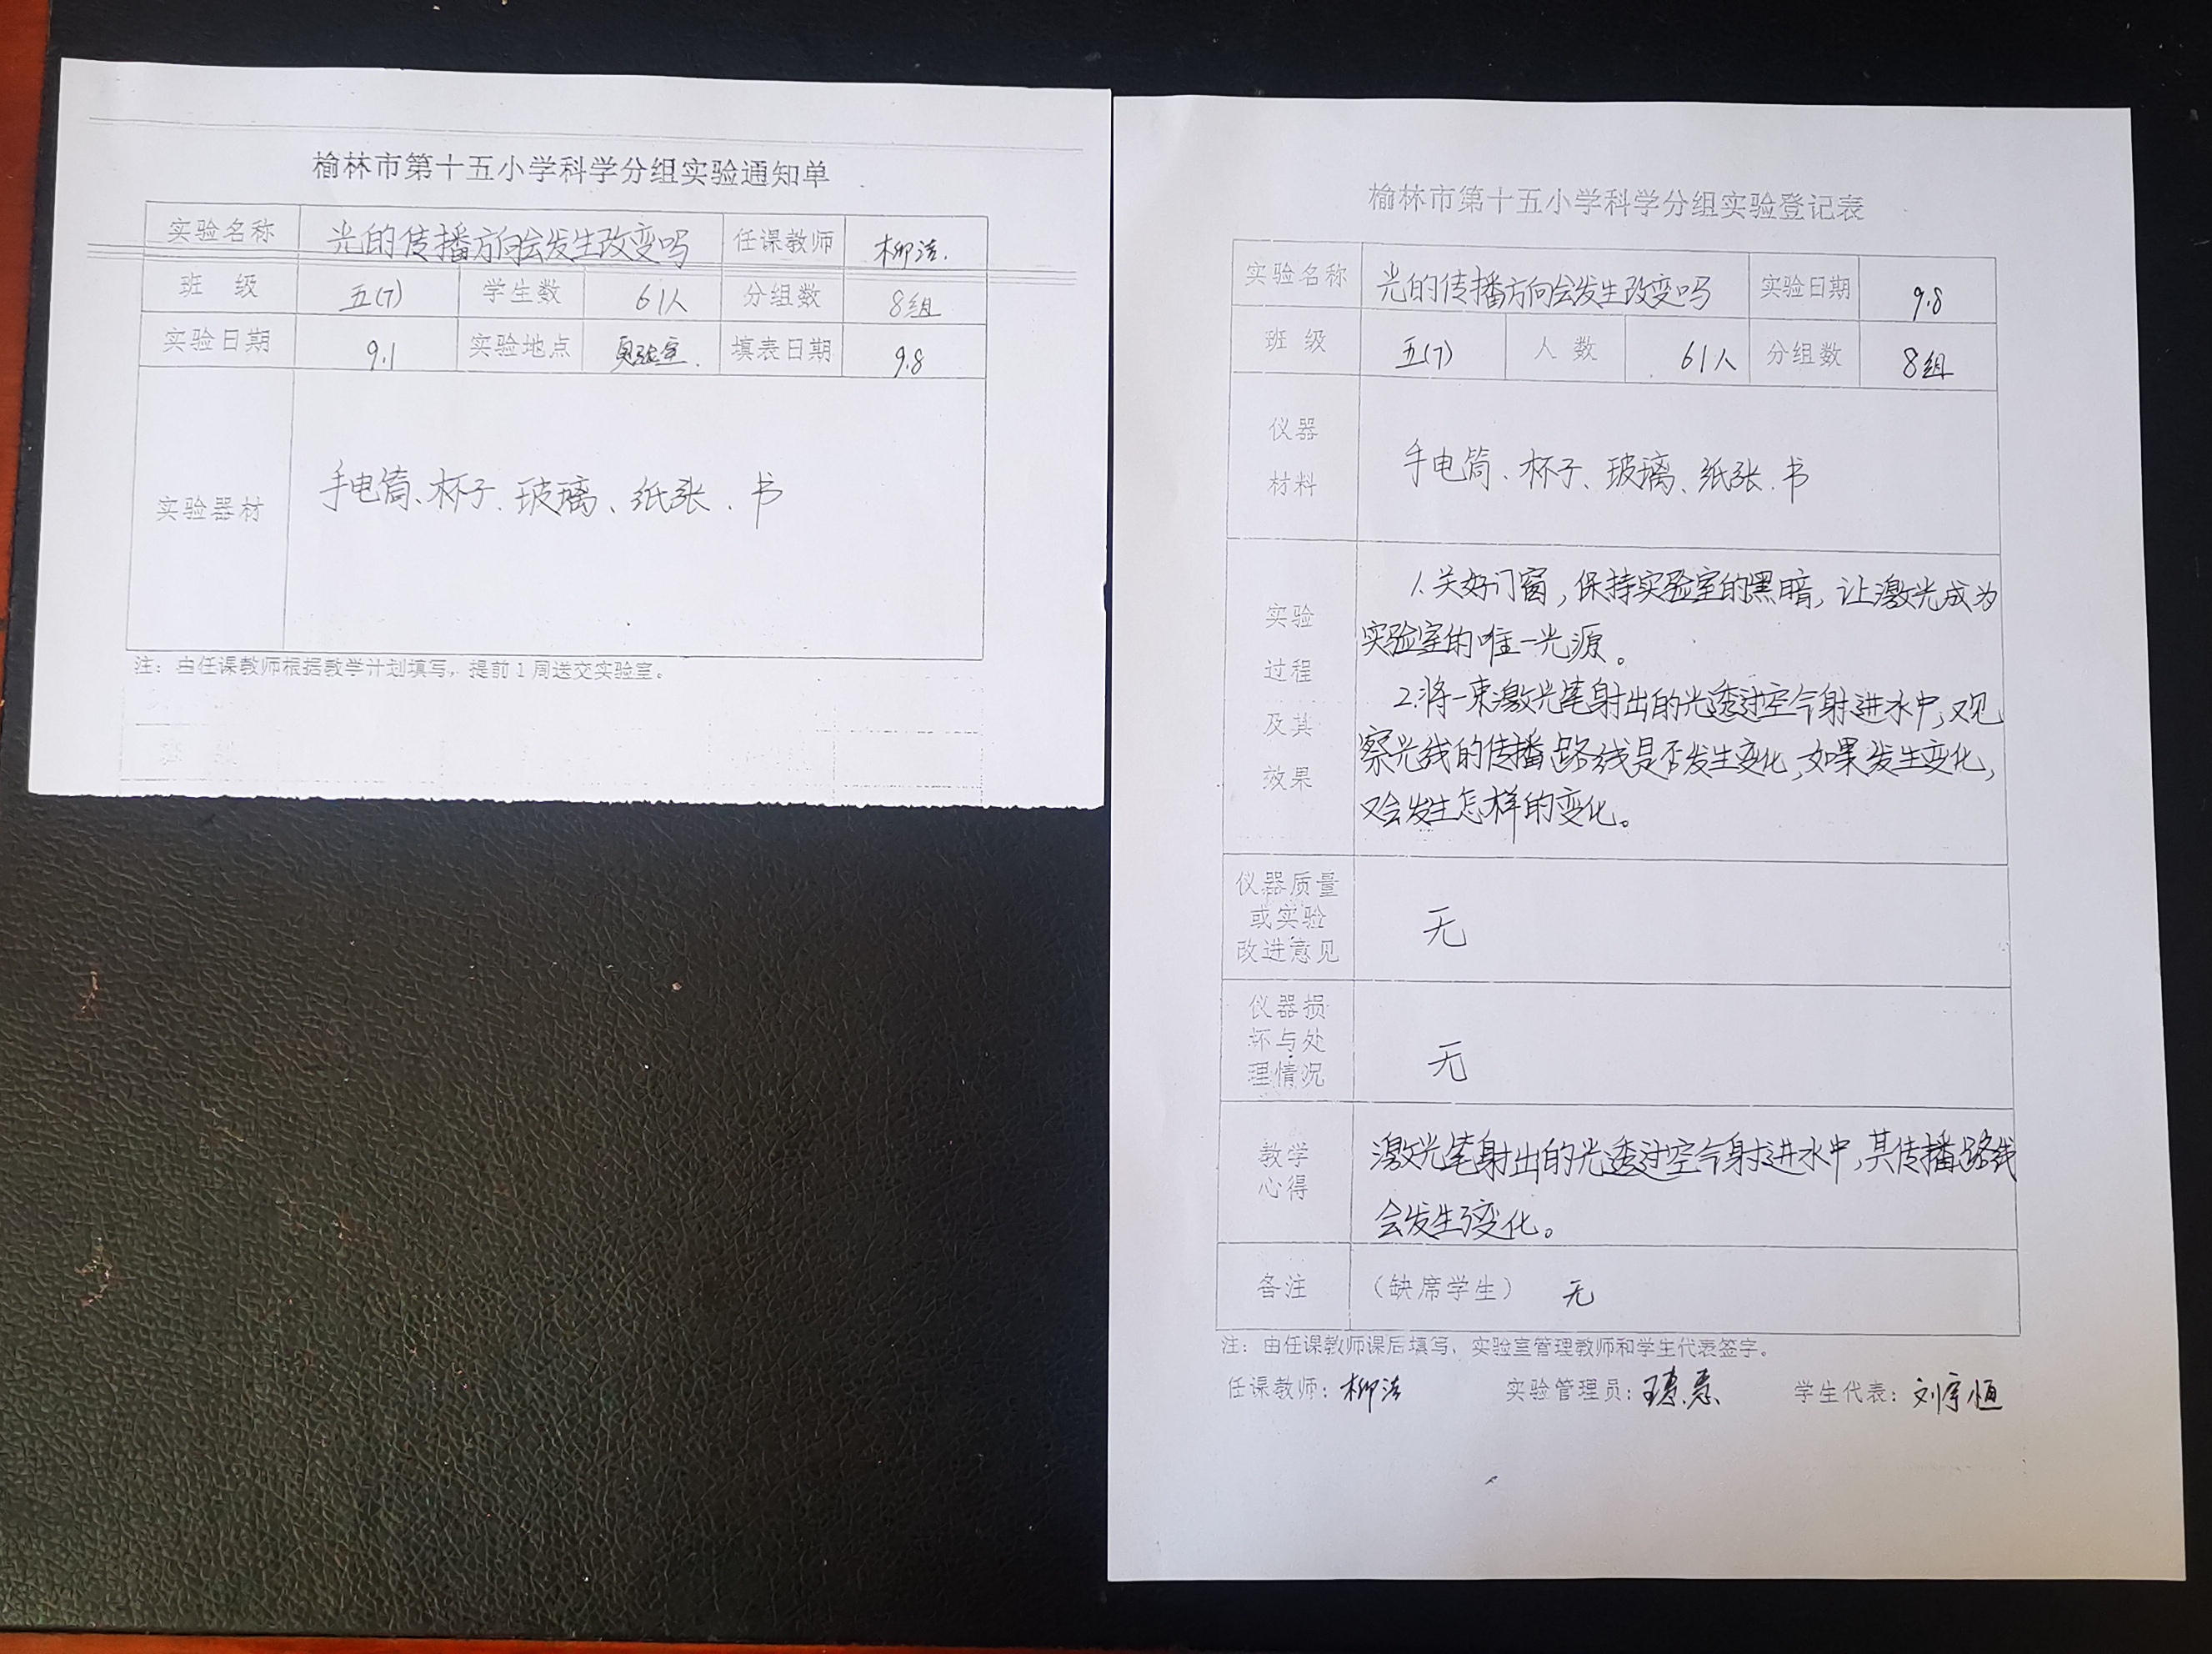 榆林市第十五小学科学分组实验通知单
实验名称 光的传播方向会发生改变吗 任课教师 柳洁
班 级 五(7) 学生数 61人 分组数 8组
实验日期 9.1 实验地点 实验室. 填表日期 9.8
实验器材 手电筒、杯子、玻璃、纸张、书
注：由任课教师根据教学计划填写，提前1周送交实验室。
榆林市第十五小学科学分组实验登记表
实验名称 光的传播方向会发生改变吗 实验日期 9.8
班 级 五(7) 人 数 61人 分组数 8组
仪器
材料
手电筒、杯子、玻璃、纸张、书
实验
过程
及其
效果
1.关好门窗，保持实验室的黑暗，让激光成为
实验室的唯一光源。
2.将一束激光笔射出的光透过空气射进水中，观
察光线的传播路线是否发生变化，如果发生变化，
又会发生怎样的变化。
仪器质量
或实验
改进意见
无
仪器损
坏与处
理情况
无
教学
心得
激光笔射出的光透过空气射进水中，其传播路线
会发生变化。
备注 （缺席学生） 无
注：由任课教师课后填写、实验室管理教师和学生代表签字。
任课教师：柳洁 实验管理员： 学生代表：刘宇恒